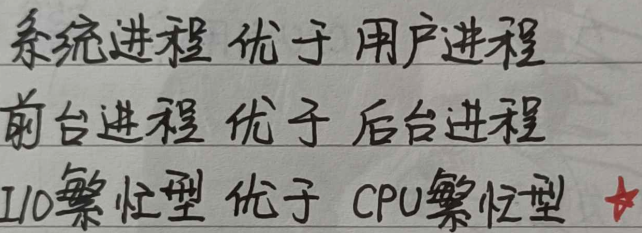 系统进程 优于 用户进程
前台进程 优于 后台进程
I/O繁忙型 优于 CPU繁忙型 ☆